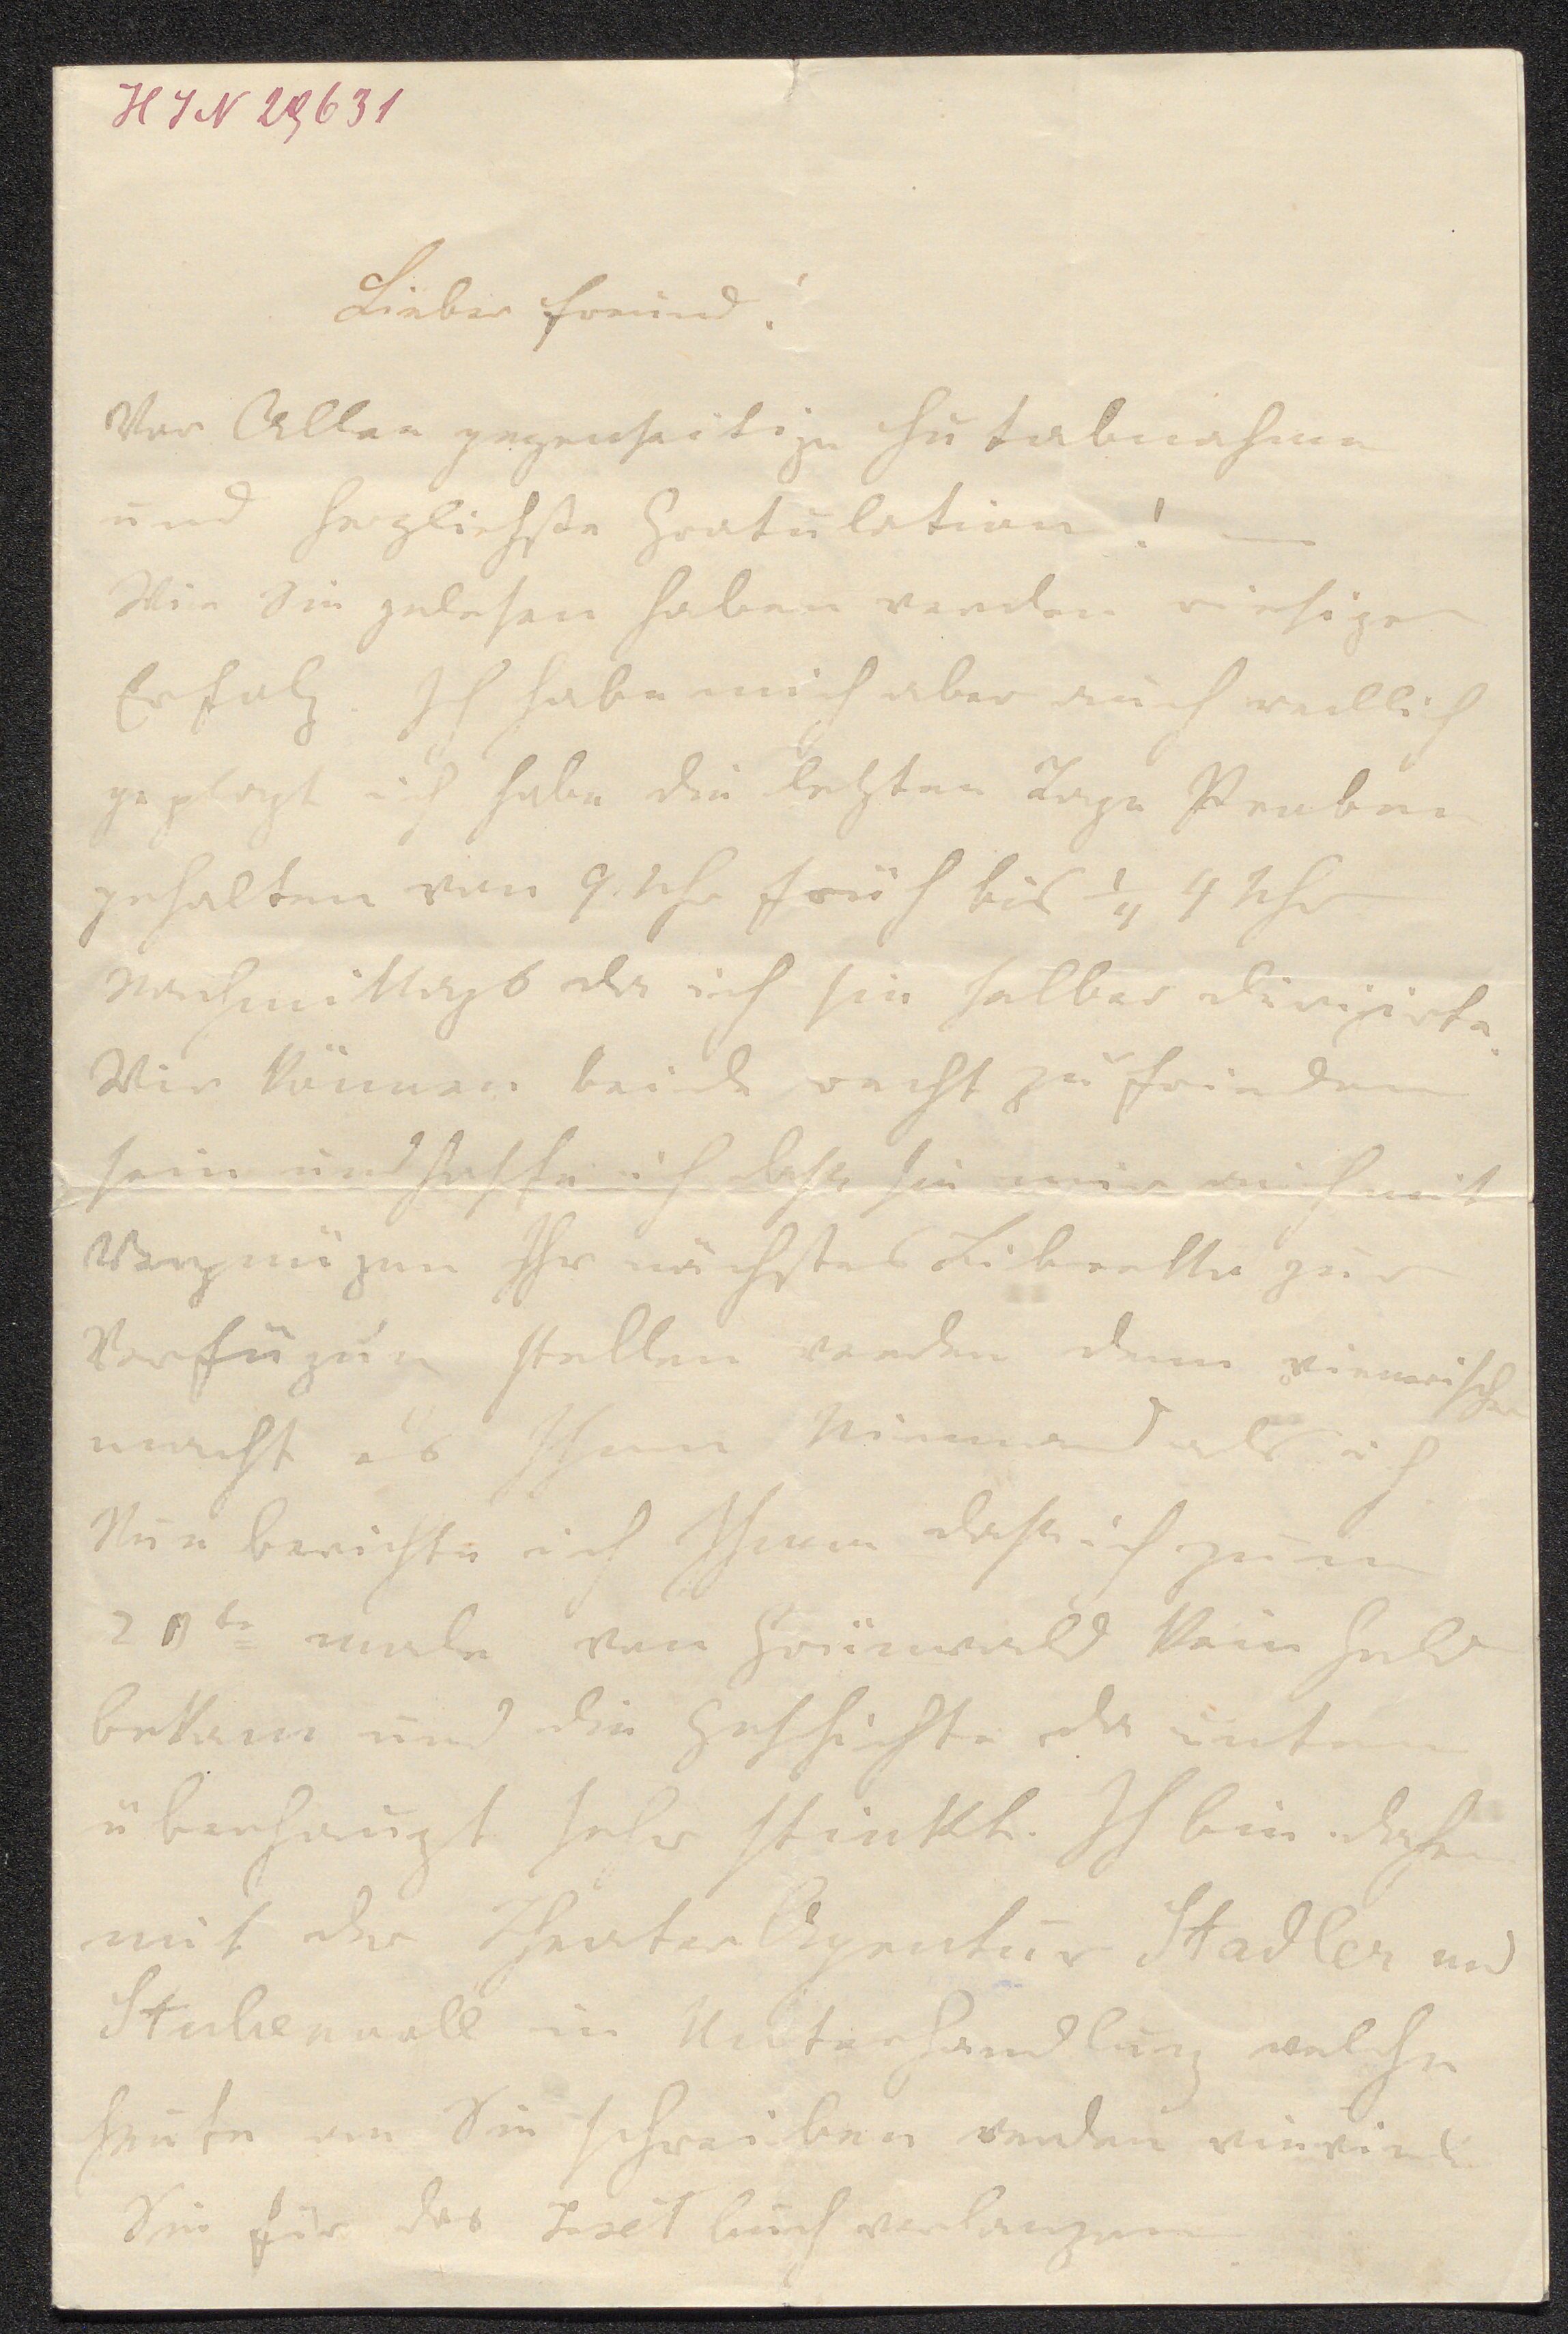 H I N 29631
Lieber Freund!
Vor Allem gegenseitige Hutabnahme
und herzlichste Gratulation! —
Wie Sie gelesen haben werden riesiger
Erfolg. Ich habe mich aber auch redlich
geplagt ich habe die letzten Tage Proben
gehalten von 9 Uhr früh bis ¼ 4 Uhr
Nachmittags da ich sie selber dirigirte.
Wir können beide recht zufrieden
sein und hoffe ich daß Sie mir auch mit
Vergnügen Ihr nächstes Libretto zur
Verfügung stellen werden denn
macht es Ihnen Niemand als ich
Nun berichte ich Ihnen daß ich zum
20te male von Grünwald kein Geld
bekam und die Geschichte da unten
überhaupt sehr stinkt. Ich bin daher
mit der Theater Agentur Stadler und
Stubenvoll in Unterhandlung welche
heute an Sie schreiben werden wieviel
Sie für das Textbuch verlangen